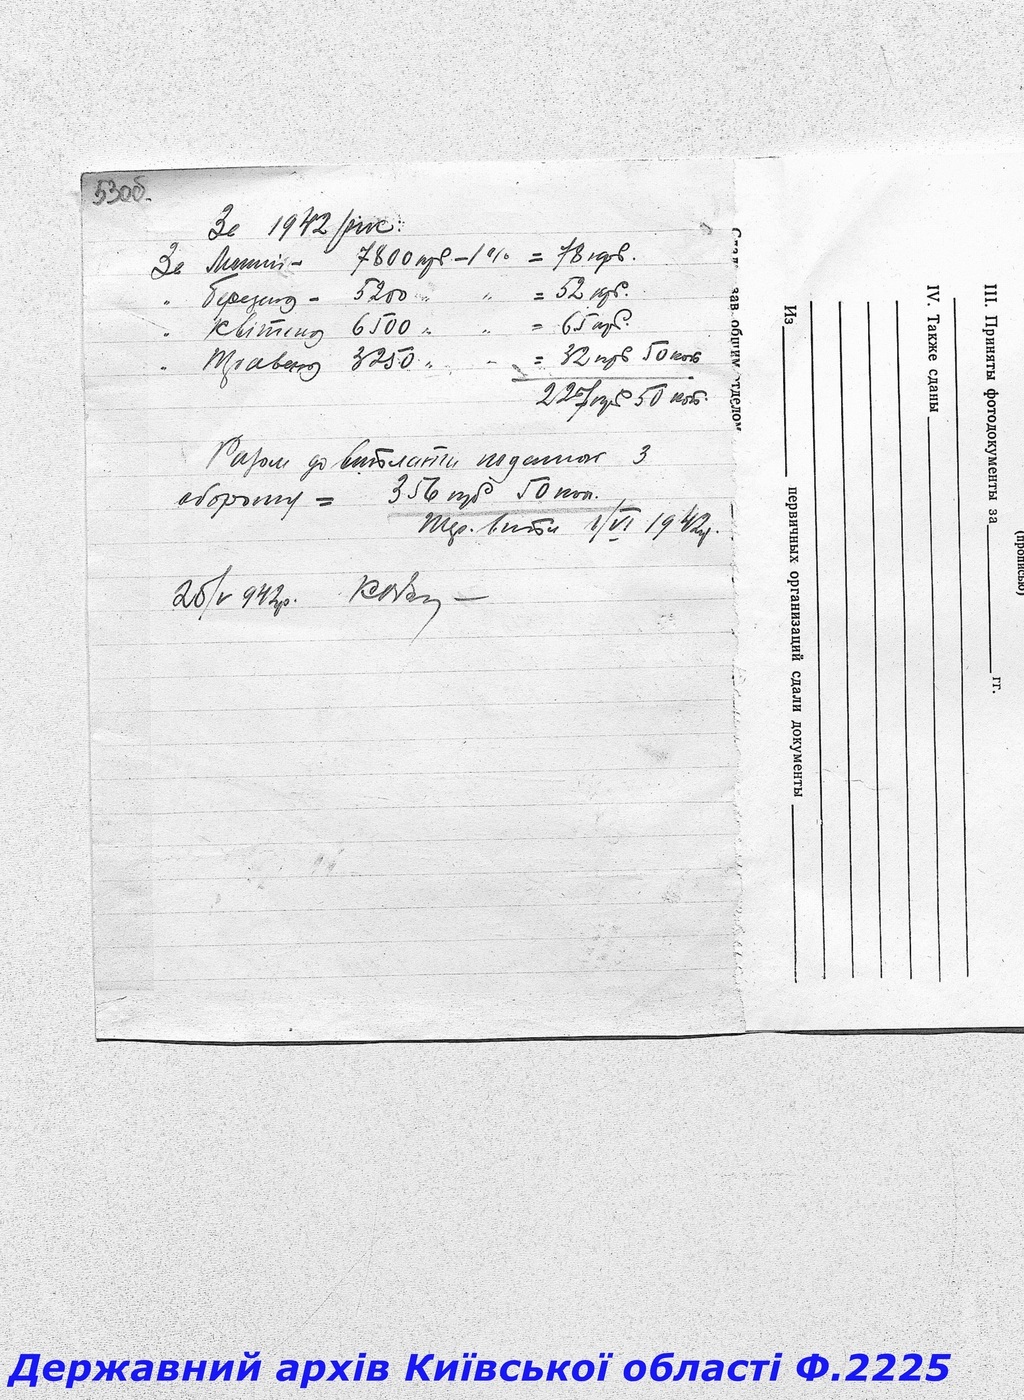 53об.
За 1942 рік:
За Лютий – 7800 крб – 1% = 78 крб.
" березень – 5200 " " = 52 крб.
" квітень 6500 " " = 65 крб.
" Травень 3250 " - = 32 крб 50 коп
227 крб 50 коп.
Разом до виплати податок з
обороту = 356 крб 50 коп.
1/VI 1942р.
26/V 942р.
зав общим отделом
Из первичных организаций сдали документы
IV. Также сданы
III. Приняты фотодокументы за гг.
(прописью)
Державний архів Київської області Ф.2225